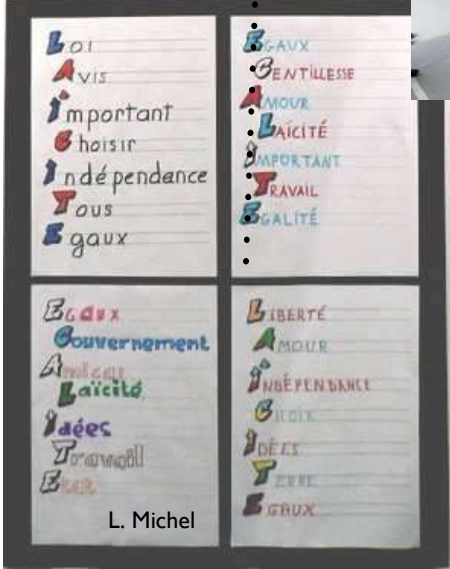 Loi
Avis
Important
Choisir
Indépendance
Tous
Egaux
EGAUX
GENTILLESSE
AMOUR
LAÏCITÉ
IMPORTANT
TRAVAIL
EGALITÉ
EGAUX
Gouvernement
Amical
Laïcité
Idées
Travail
LIBERTÉ
AMOUR
INDÉPENDANCE
CHOIX
IDÉES
TERRE
EGAUX
L. Michel